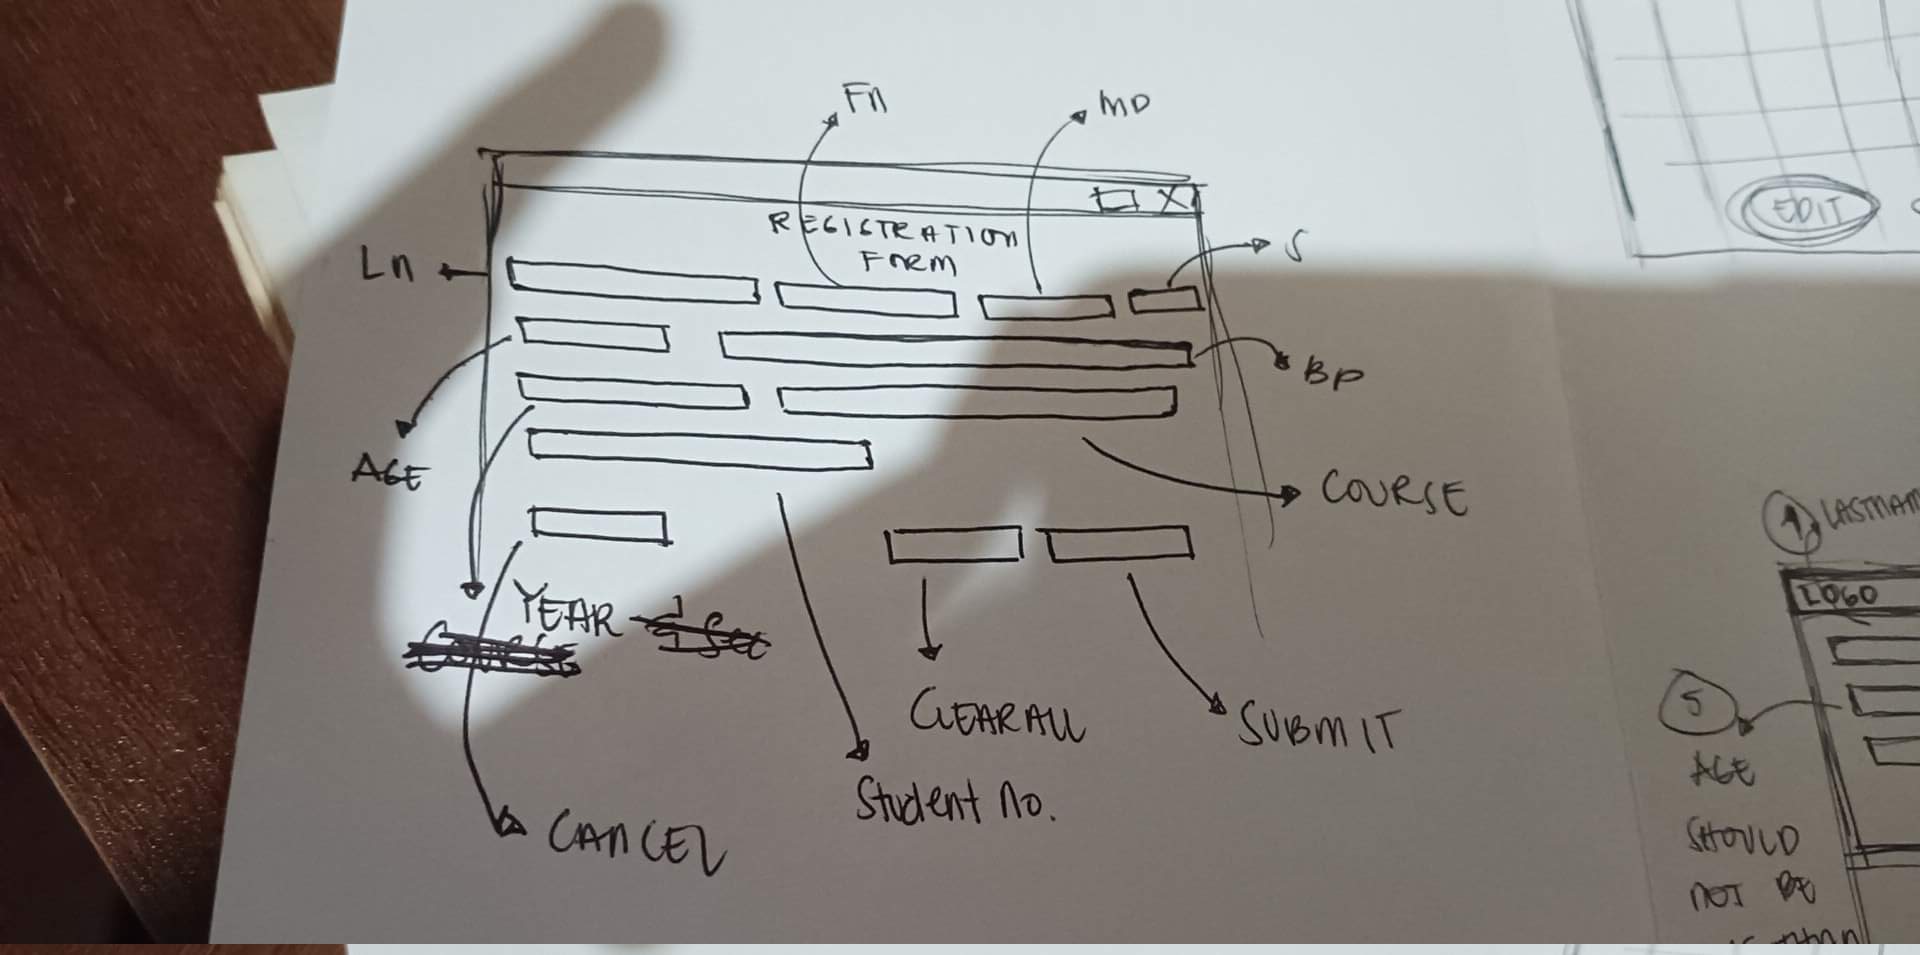 Fn
MD
X
REGISTRATION
FORM
Ln
S
BP
AGE
COURSE
YEAR
CLEAR ALL
SUBMIT
Student no.
CANCEL
EDIT
1 LASTNAM
LOGO
5
AGE
SHOULD
NOT BE